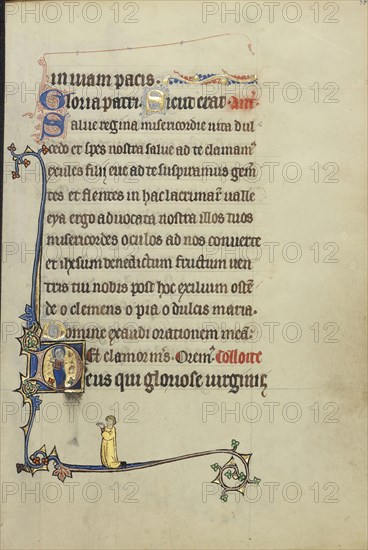 in uiam pacis.
Gloria patri. Sicut erat. Ant'
Salue regina misericordie uita dul
cedo et spes nostra salue ad te clamam'
exules filij eue ad te suspiramus gemē
tes et flentes in hac lacrimar' ualle
eya ergo aduocata nostra illos tuos
misericordes oculos ad nos conuerte
et ihesum benedictum fructum uen
tris tui nobis post hoc exilium ostē
de o clemens o pia o dulcis maria.
Domine exaudi orationem meā:
Et clamor m's. Orem'. Colloite
Deus qui gloriose uirginis
PHOTO 12